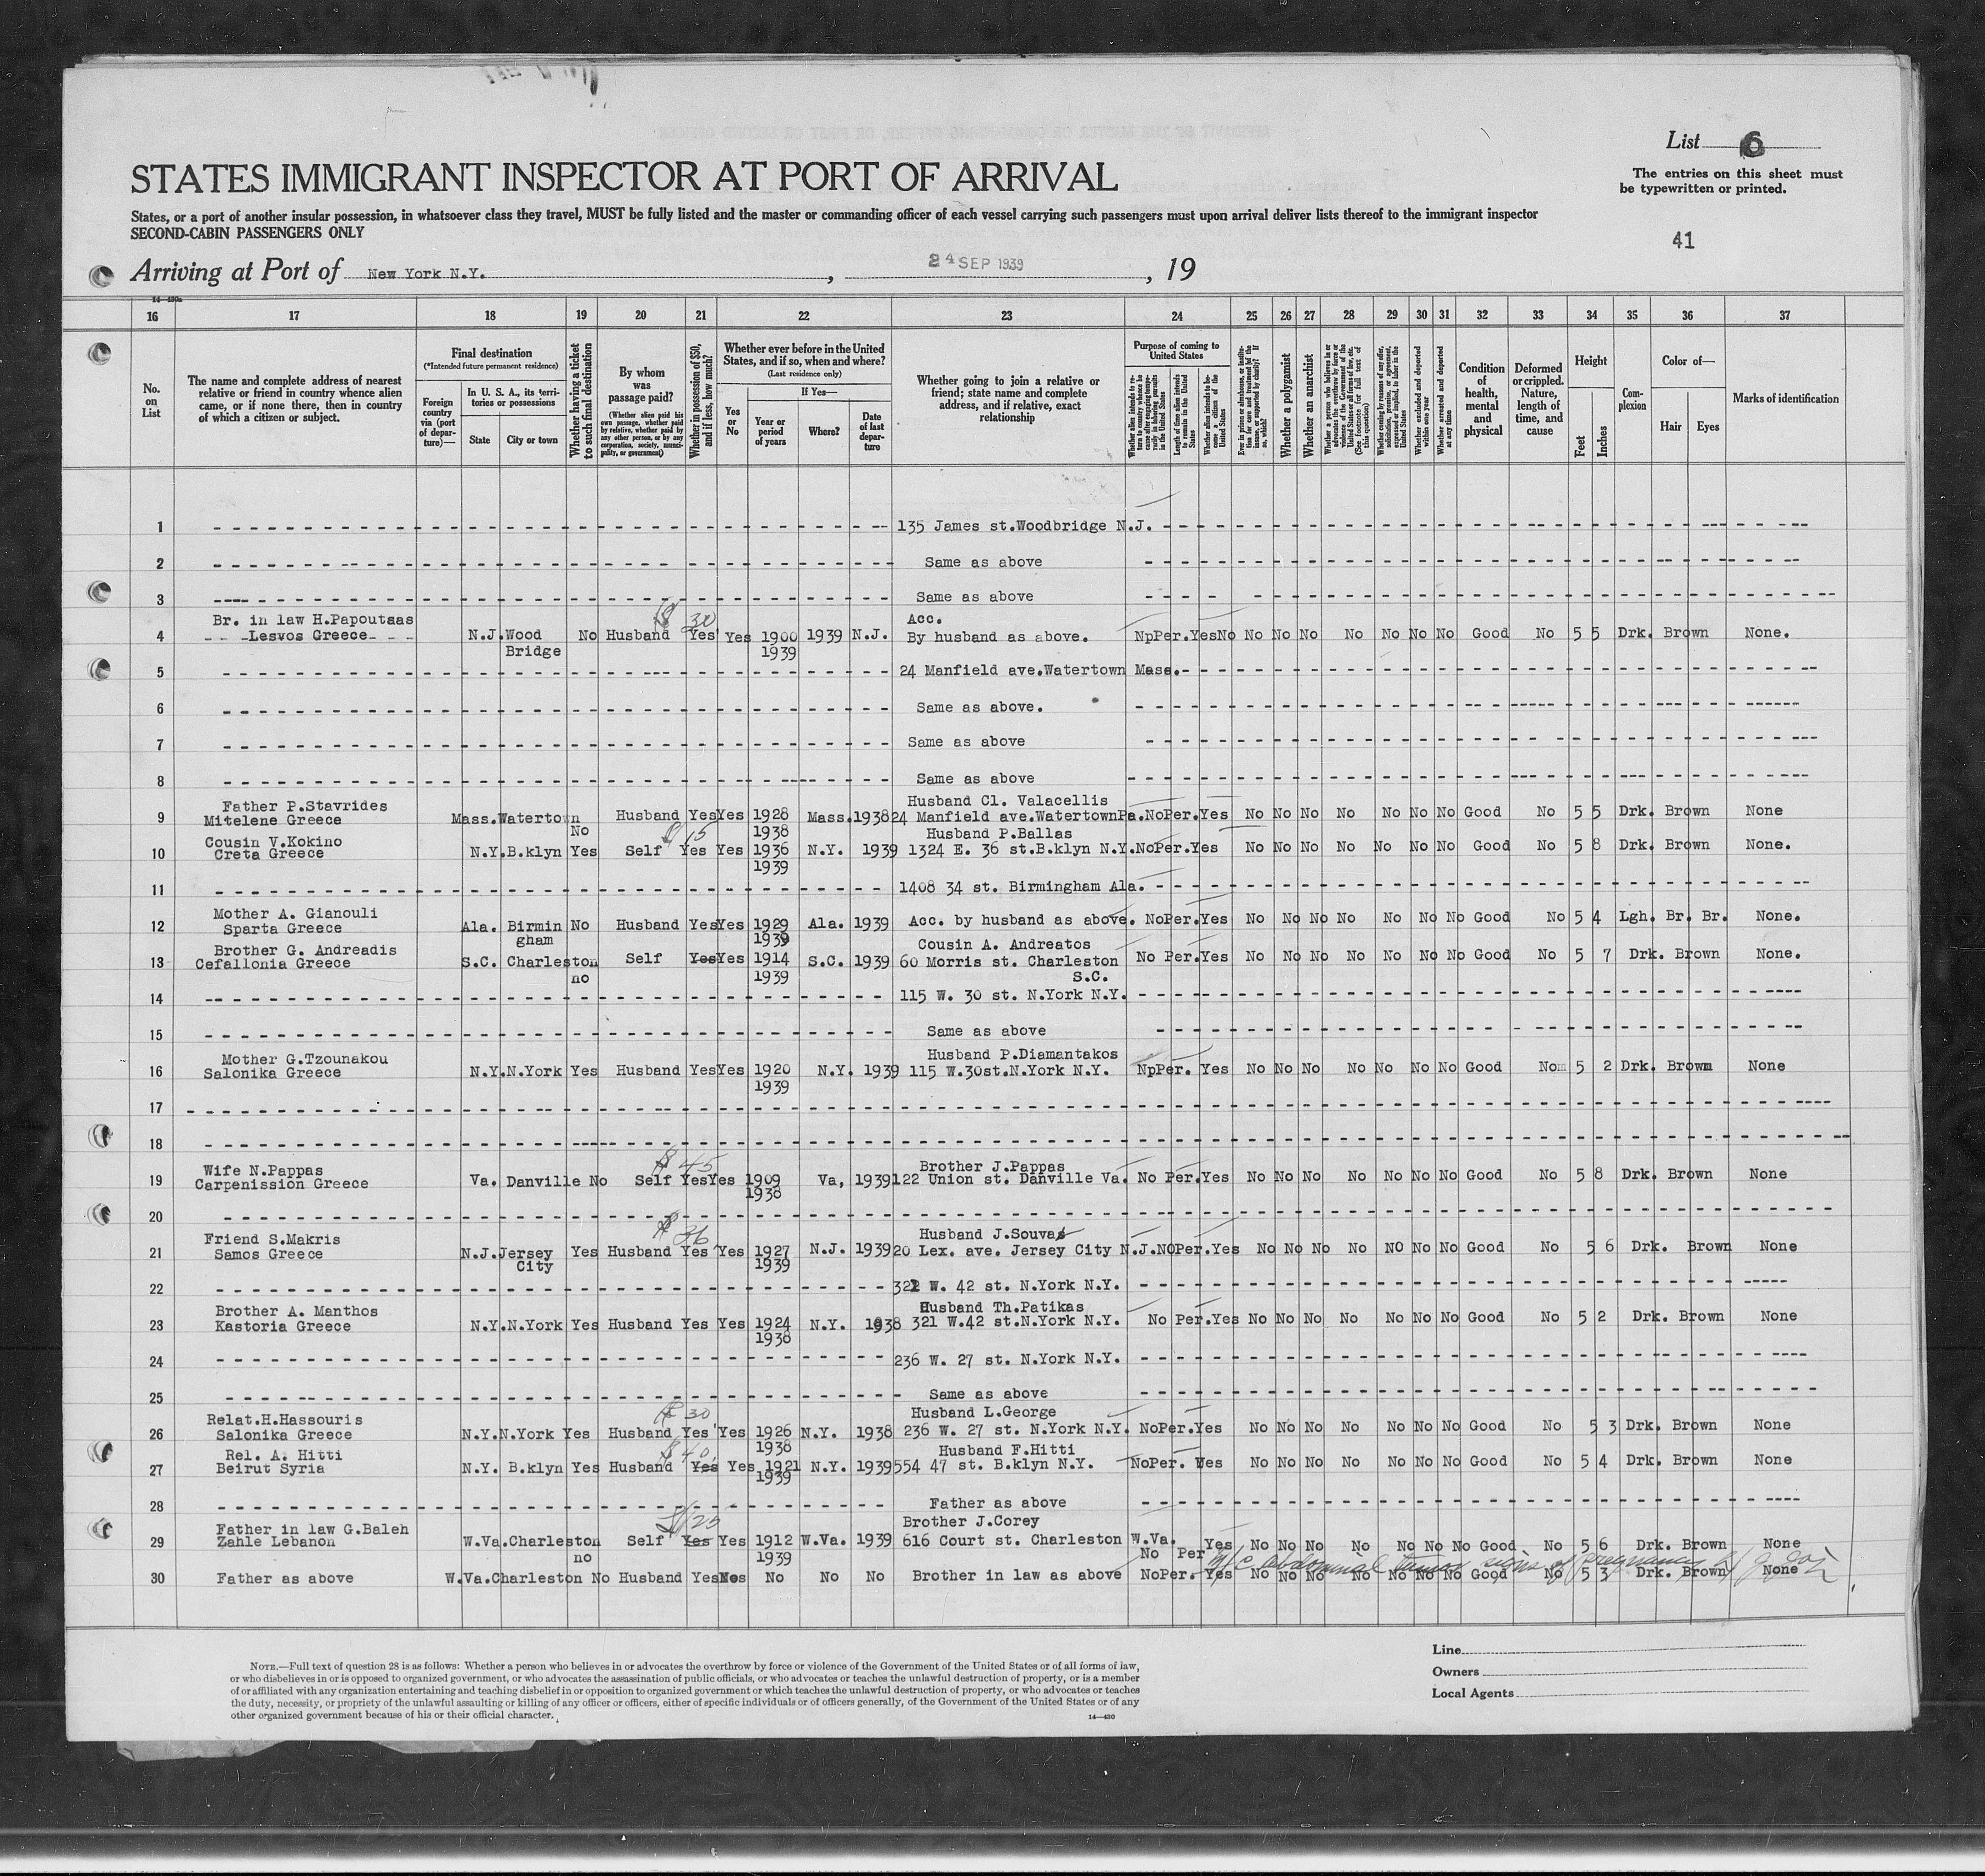 List 6
The entries on this sheet must
be typewritten or printed.
STATES IMMIGRANT INSPECTOR AT PORT OF ARRIVAL
States, or a port of another insular possession, in whatsoever class they travel, MUST be fully listed and the master or commanding officer of each vessel carrying such passengers must upon arrival deliver lists thereof to the immigrant inspector
SECOND-CABIN PASSENGERS ONLY
41
Arriving at Port of New York N.Y. , 24 SEP 1939 , 19
14—430a
16 17 18 19 20 21 22 23 24 25 26 27 28 29 30 31 32 33 34 35 36 37
No. on List
The name and complete address of nearest relative or friend in country whence alien came, or if none there, then in country of which a citizen or subject.
Final destination
(*Intended future permanent residence)
Foreign country via (port of departure)—
In U. S. A., its territories or possessions
State
City or town
Whether having a ticket to such final destination
By whom was passage paid?
(Whether alien paid his own passage, whether paid by relative, whether paid by any other person, or by any corporation, society, municipality, or government)
Whether in possession of $50, and if less, how much?
Whether ever before in the United States, and if so, when and where?
(Last residence only)
Yes or No
If Yes—
Year or period of years
Where?
Date of last departure
Whether going to join a relative or friend; state name and complete address, and if relative, exact relationship
Purpose of coming to United States
Length of time alien intends to remain in the United States
Whether alien intends to become a citizen of the United States
Whether a polygamist
Whether an anarchist
Whether excluded and deported within one year
Whether arrested and deported at any time
Condition of health, mental and physical
Deformed or crippled. Nature, length of time, and cause
Height
Feet
Inches
Complexion
Color of—
Hair
Eyes
Marks of identification
1 135 James st.Woodbridge N.J.
2 Same as above
3 Same as above
Br. in law H.Papoutsas $ 30 Acc.
4 Lesvos Greece N.J. Wood No Husband Yes Yes 1900 1939 N.J. By husband as above. Np Per. Yes No No No No No No No No Good No 5 5 Drk. Brown None.
Bridge 1939
5 24 Manfield ave.Watertown Mass.
6 Same as above.
7 Same as above
8 Same as above
Father P.Stavrides Husband Cl. Valacellis
9 Mitelene Greece Mass. Watertown Husband Yes Yes 1928 Mass. 1938 24 Manfield ave.Watertown Pa. No Per. Yes No No No No No No No Good No 5 5 Drk. Brown None
No 1938
Cousin V.Kokino $ 15 Husband P.Ballas
10 Creta Greece N.Y. B.klyn Yes Self Yes Yes 1936 N.Y. 1939 1324 E. 36 st.B.klyn N.Y. No Per. Yes No No No No No No No Good No 5 8 Drk. Brown None.
1939
11 1408 34 st. Birmingham Ala.
Mother A. Gianouli
12 Sparta Greece Ala. Birmin No Husband Yes Yes 1929 Ala. 1939 Acc. by husband as above. No Per. Yes No No No No No No No Good No 5 4 Lgh. Br. Br. None.
gham 1939
Brother G. Andreadis Cousin A. Andreatos
13 Cefallonia Greece S.C. Charleston Self Yes Yes 1914 S.C. 1939 60 Morris st. Charleston No Per. Yes No No No No No No No Good No 5 7 Drk. Brown None.
no 1939 S.C.
14 115 W. 30 st. N.York N.Y.
15 Same as above
Mother G.Tzounakou Husband P.Diamantakos
16 Salonika Greece N.Y. N.York Yes Husband Yes Yes 1920 N.Y. 1939 115 W.30st.N.York N.Y. Np Per. Yes No No No No No No No Good No 5 2 Drk. Brown None
1939
17
18
Wife N.Pappas $ 45 Brother J.Pappas
19 Carpenission Greece Va. Danville No Self Yes Yes 1909 Va, 1939 122 Union st. Danville Va. No Per. Yes No No No No No No No Good No 5 8 Drk. Brown None
1938
20
Friend S.Makris $ 36 Husband J.Souvas
21 Samos Greece N.J. Jersey Yes Husband Yes Yes 1927 N.J. 1939 20 Lex. ave. Jersey City N.J. NO Per. Yes No No No No NO No No Good No 5 6 Drk. Brown None
City 1939
22 321 W. 42 st. N.York N.Y.
Brother A. Manthos Husband Th.Patikas
23 Kastoria Greece N.Y. N.York Yes Husband Yes Yes 1924 N.Y. 1938 321 W.42 st.N.York N.Y. No Per. Yes No No No No No No No Good No 5 2 Drk. Brown None
1938
24 236 W. 27 st. N.York N.Y.
25 Same as above
Relat.H.Hassouris $ 30 Husband L.George
26 Salonika Greece N.Y. N.York Yes Husband Yes Yes 1926 N.Y. 1938 236 W. 27 st. N.York N.Y. No Per. Yes No No No No No No No Good No 5 3 Drk. Brown None
1938
Rel. A. Hitti $ 40 Husband F.Hitti
27 Beirut Syria N.Y. B.klyn Yes Husband Yes Yes 1921 N.Y. 1939 554 47 st. B.klyn N.Y. No Per. Yes No No No No No No No Good No 5 4 Drk. Brown None
1939
28 Father as above
Father in law G.Baleh $ 25 Brother J.Corey
29 Zahle Lebanon W.Va. Charleston Self Yes Yes 1912 W.Va. 1939 616 Court st. Charleston W.Va. Yes No No No No No No No Good No 5 6 Drk. Brown None
no 1939 No Per
abdominal tumor signs of pregnancy
30 Father as above W.Va. Charleston No Husband Yes No No No Brother in law as above No Per. Yes No No No No No No No Good No 5 3 Drk. Brown None
Line
Owners
Local Agents
NOTE.—Full text of question 28 is as follows: Whether a person who believes in or advocates the overthrow by force or violence of the Government of the United States or of all forms of law,
or who disbelieves in or is opposed to organized government, or who advocates the assassination of public officials, or who advocates or teaches the unlawful destruction of property, or is a member
of or affiliated with any organization entertaining and teaching disbelief in or opposition to organized government or which teaches the unlawful destruction of property, or who advocates or teaches
the duty, necessity, or propriety of the unlawful assaulting or killing of any officer or officers, either of specific individuals or of officers generally, of the Government of the United States or of any
other organized government because of his or their official character.
14—430